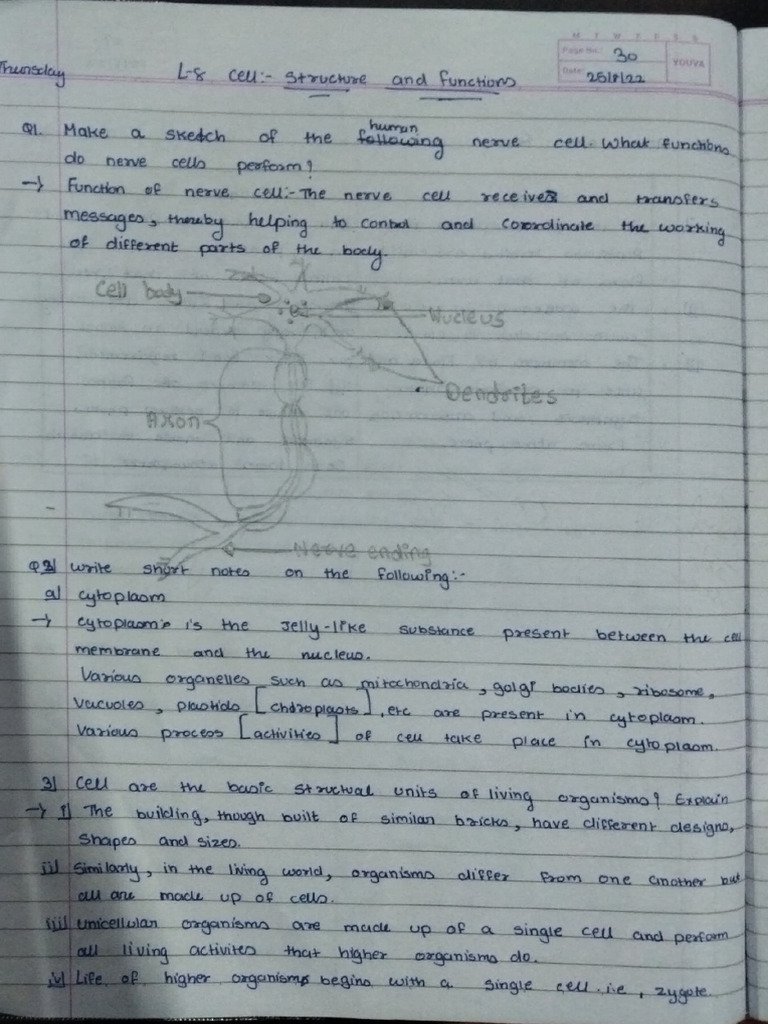 M T W T F S S
Page No.: 30
YOUVA
Date: 25/8/22
Thursday
L-8 Cell:- Structure and functions
Q1. Make a sketch of the human following nerve cell. What functions
do nerve cells perform?
→ Function of nerve cell:- The nerve cell receives and transfers
messages, thereby helping to control and coordinate the working
of different parts of the body.
Cell body
Nucleus
Dendrites
Axon
Nerve ending
Q2 Write short notes on the following:-
a) Cytoplasm
→ Cytoplasm is the Jelly-like substance present between the cell
membrane and the nucleus.
Various organelles such as mitochondria, golgi bodies, ribosome,
vacuoles, plastids [chdroplasts], etc are present in cytoplasm.
Various process [activities] of cell take place in cytoplasm.
3) Cell are the basic structual units of living organisms? Explain
→ i) The building, though built of similar bricks, have different designs,
shapes and sizes.
ii) Similarly, in the living world, organisms differ from one another but
all are made up of cells.
iii) Unicellular organisms are made up of a single cell and perform
all living activites that higher organisms do.
iv) Life of higher organisms begins with a single cell i.e, zygote.